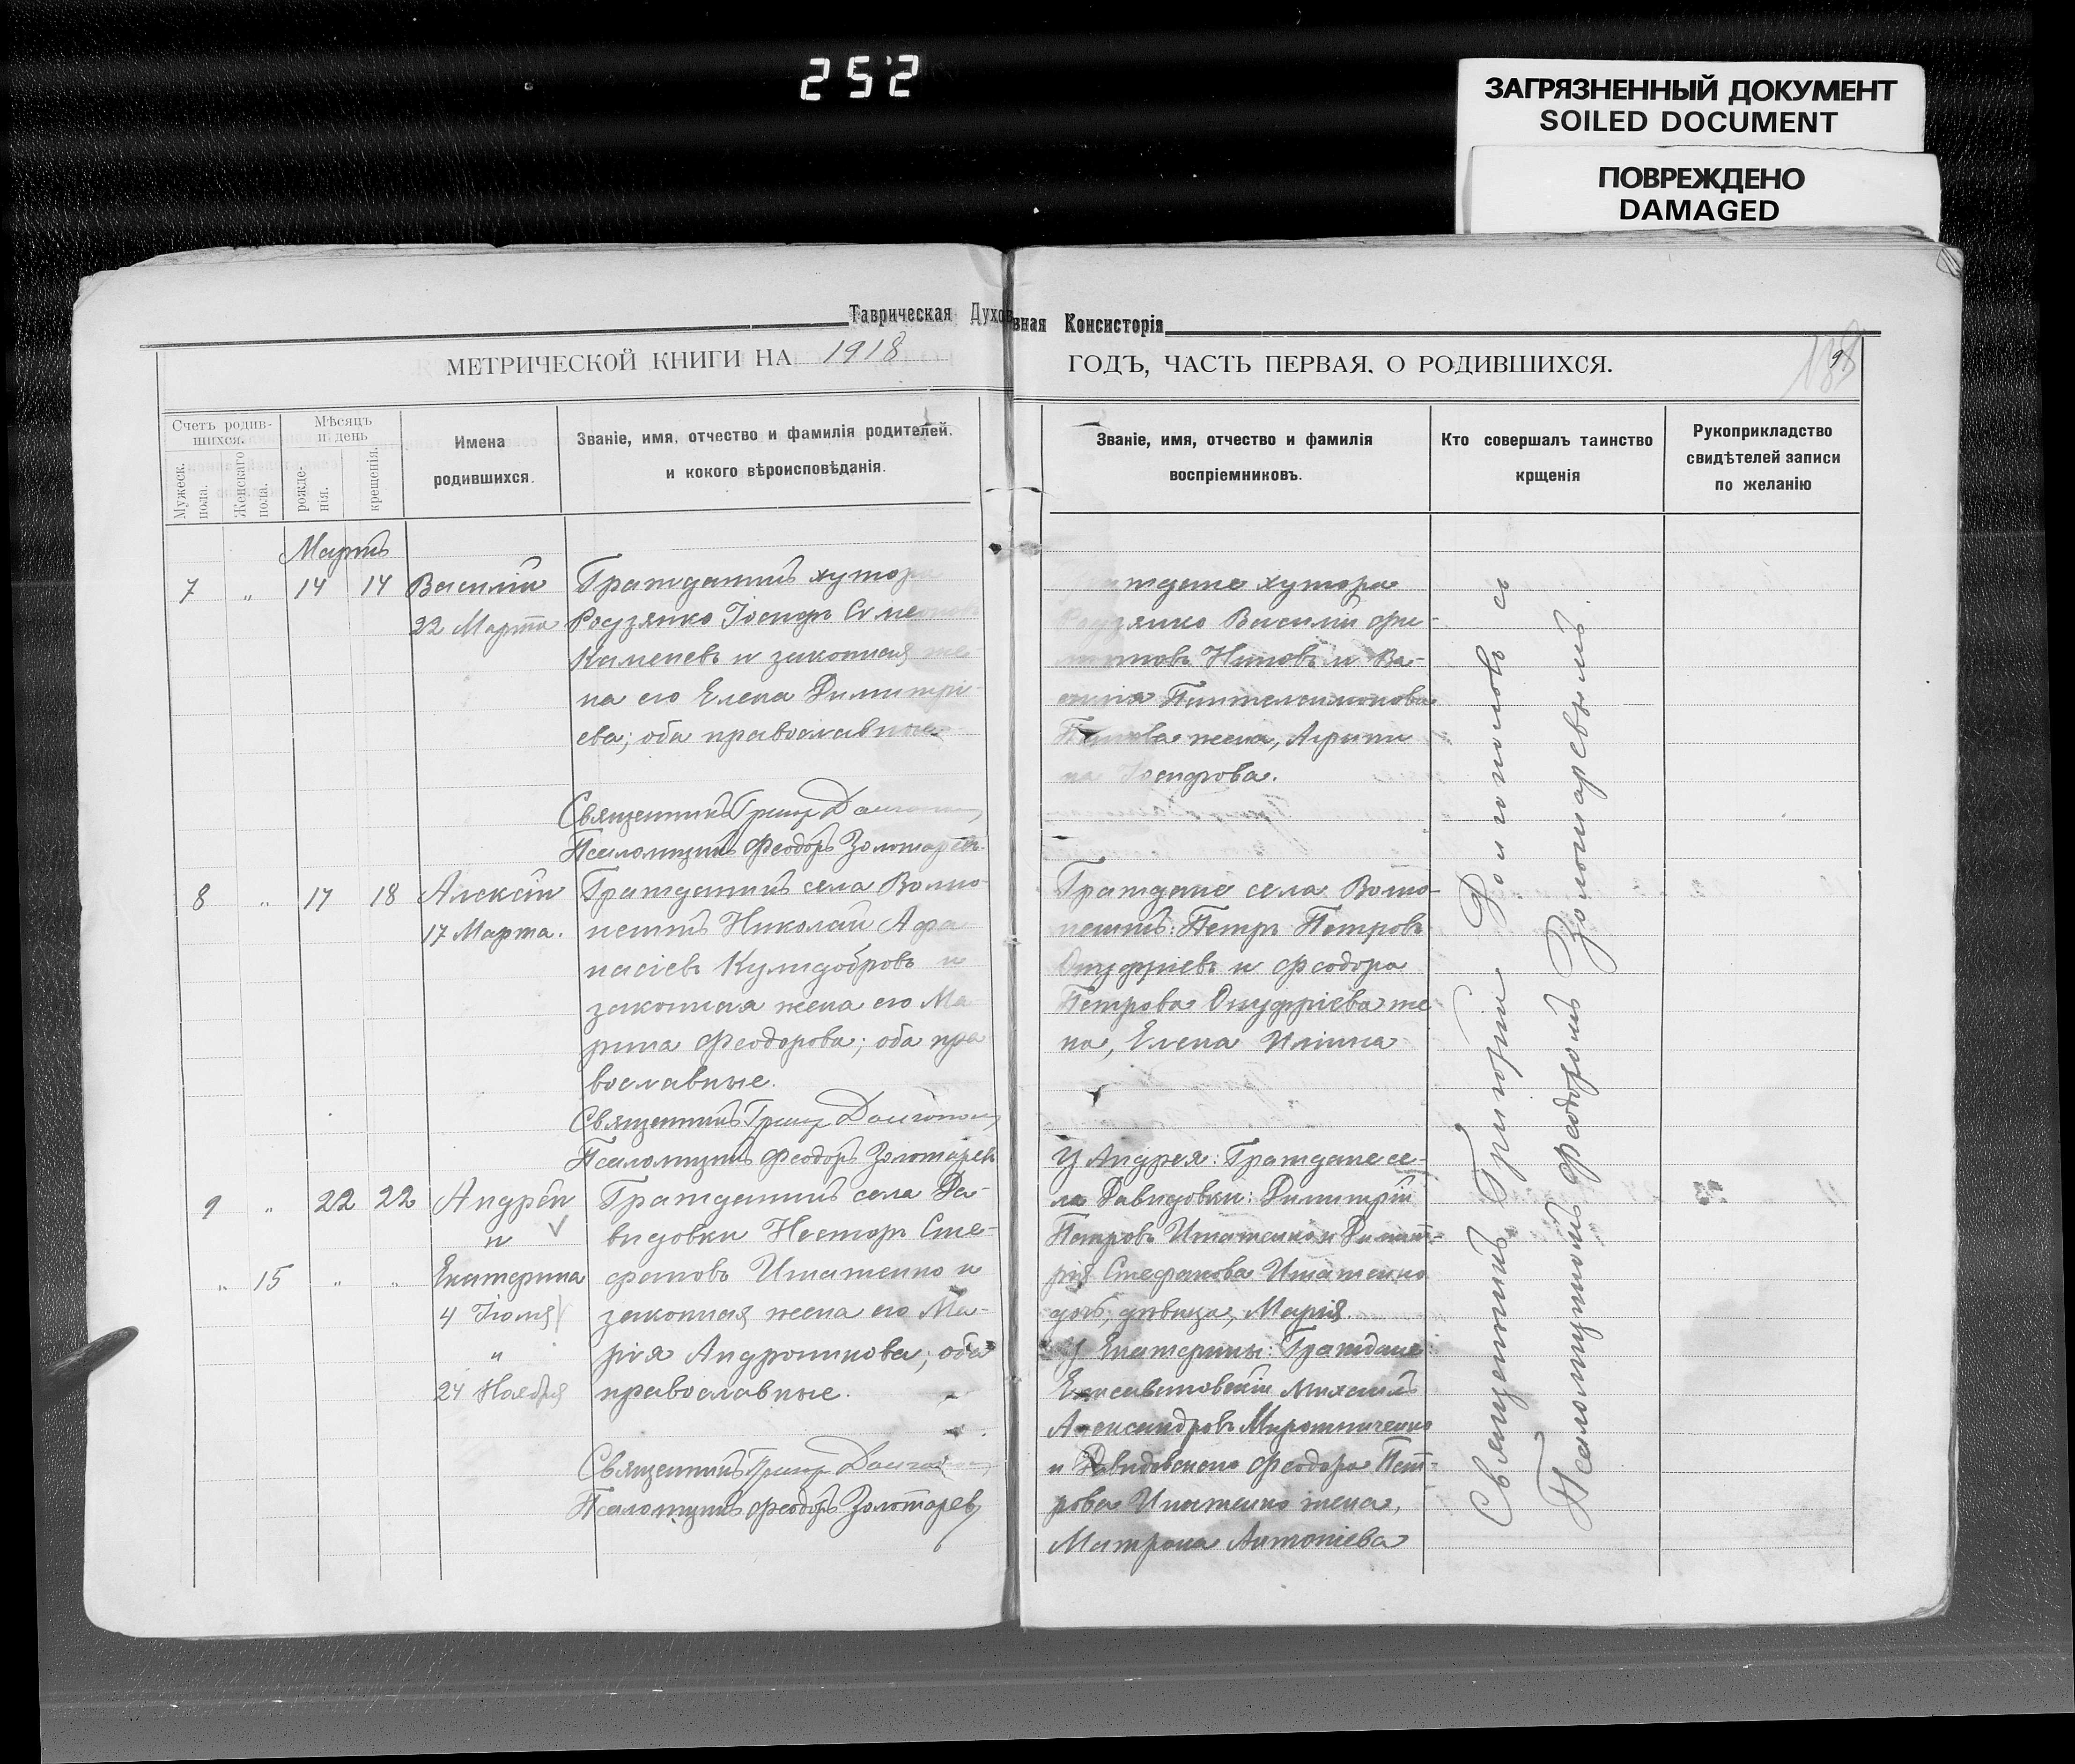 252
ЗАГРЯЗНЕННЫЙ ДОКУМЕНТ
SOILED DOCUMENT
ПОВРЕЖДЕНО
DAMAGED
Таврическая Духовная Консисторія
МЕТРИЧЕСКОЙ КНИГИ НА 1918 ГОДЪ, ЧАСТЬ ПЕРВАЯ, О РОДИВШИХСЯ.
Счетъ родив-
шихся.
Мужеск.
пола.
Женскаго
пола.
Мѣсяцъ
и день
рожде-
нія.
крещенія.
Имена
родившихся.
Званіе, имя, отчество и фамилія родителей.
и кокого вѣроисповѣданія.
Званіе, имя, отчество и фамилія
воспріемниковъ.
Кто совершалъ таинство
крщенія
Рукоприкладство
свидѣтелей записи
по желанію
Мартъ
7 " 14 14 Василій
22 Марта
Гражданинъ хутора
Родзянко Іосифъ
Каменевъ и законная же-
на его Елена Димитрі-
ева; оба православные
Священникъ Григ
Псаломщикъ Феодоръ Золотаревъ
хутора
Василій
и Ва-
Пантелеимонова
жена, Агрипи
на Іосифова.
8 " 17 18 Алексѣй
17 Марта.
Гражданинъ села Волко-
нешть Николай Афа
насіевъ и
законная жена его Ма
рина Феодорова; оба пра
вославные.
Священникъ Григ Долгопол
Псаломщикъ Феодоръ Золотарев
Граждане села
Петръ Петровъ
Онуфріевъ и Феодора
Петрова Онуфріева же
на, Елена Илiина
9 " 22 22 Андрей
и
" 15 " " Екатерина
4 Іюля
"
24 Ноября
Гражданинъ села Да-
видовки Несторъ Сте-
фановъ Игнатенко и
законная жена его Ма-
рія Андроникова; оба
православные.
Священникъ Григ
Псаломщикъ Феодоръ Золотарев
У Андрея: Граждане се-
ла Давидовки: Димитрій
Петровъ Игнатенко и Димит-
рія Стефанова Игнатенко
дочь, дѣвица, Марія.
У Екатерины: Граждане:
Елисаветовскій Михаилъ
Александровъ Мирошниченко
и Давидовского Феодора Пет-
рова Игнатенко жена,
Матрона Антоніева
Священникъ Григорій Долгополовъ со
Псаломщикомъ Феодоромъ Золотаревымъ.